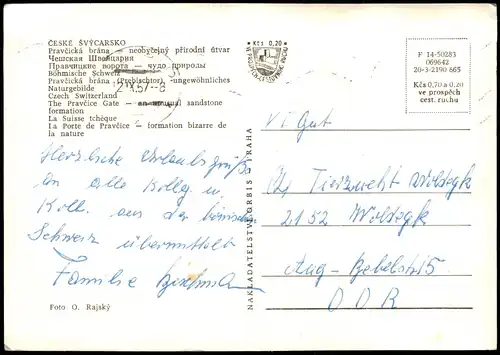 ČESKÉ ŠVÝCARSKO
Pravčická brána — neobyčejný přírodní útvar
Чешская Швайцария
Правчицкие ворота — чудо природы
Böhmische Schweiz
Pravčická brána (Prebischtor) -ungewöhnliches
Naturgebilde
Czech Switzerland
The Pravčice Gate — an unusual sandstone
formation
La Suisse tchèque
La Porte de Pravčice — formation bizarre de
la nature
Herzliche Urlaubsgrüße
an alle Kolleg u.
Koll. aus der böhmischen
Schweiz übermittelt
Familie
Foto O. Rajský
NAKLADATELSTVÍ ORBIS PRAHA
Kčs 0,20
F 14-50283
069642
20-3-2190 665
Kčs 0,70 a 0,20
ve prospěch
cest. ruchu
VEGut
Tierzucht Woldegk
2152 Woldegk
Aug-Bebelstr 5
DDR